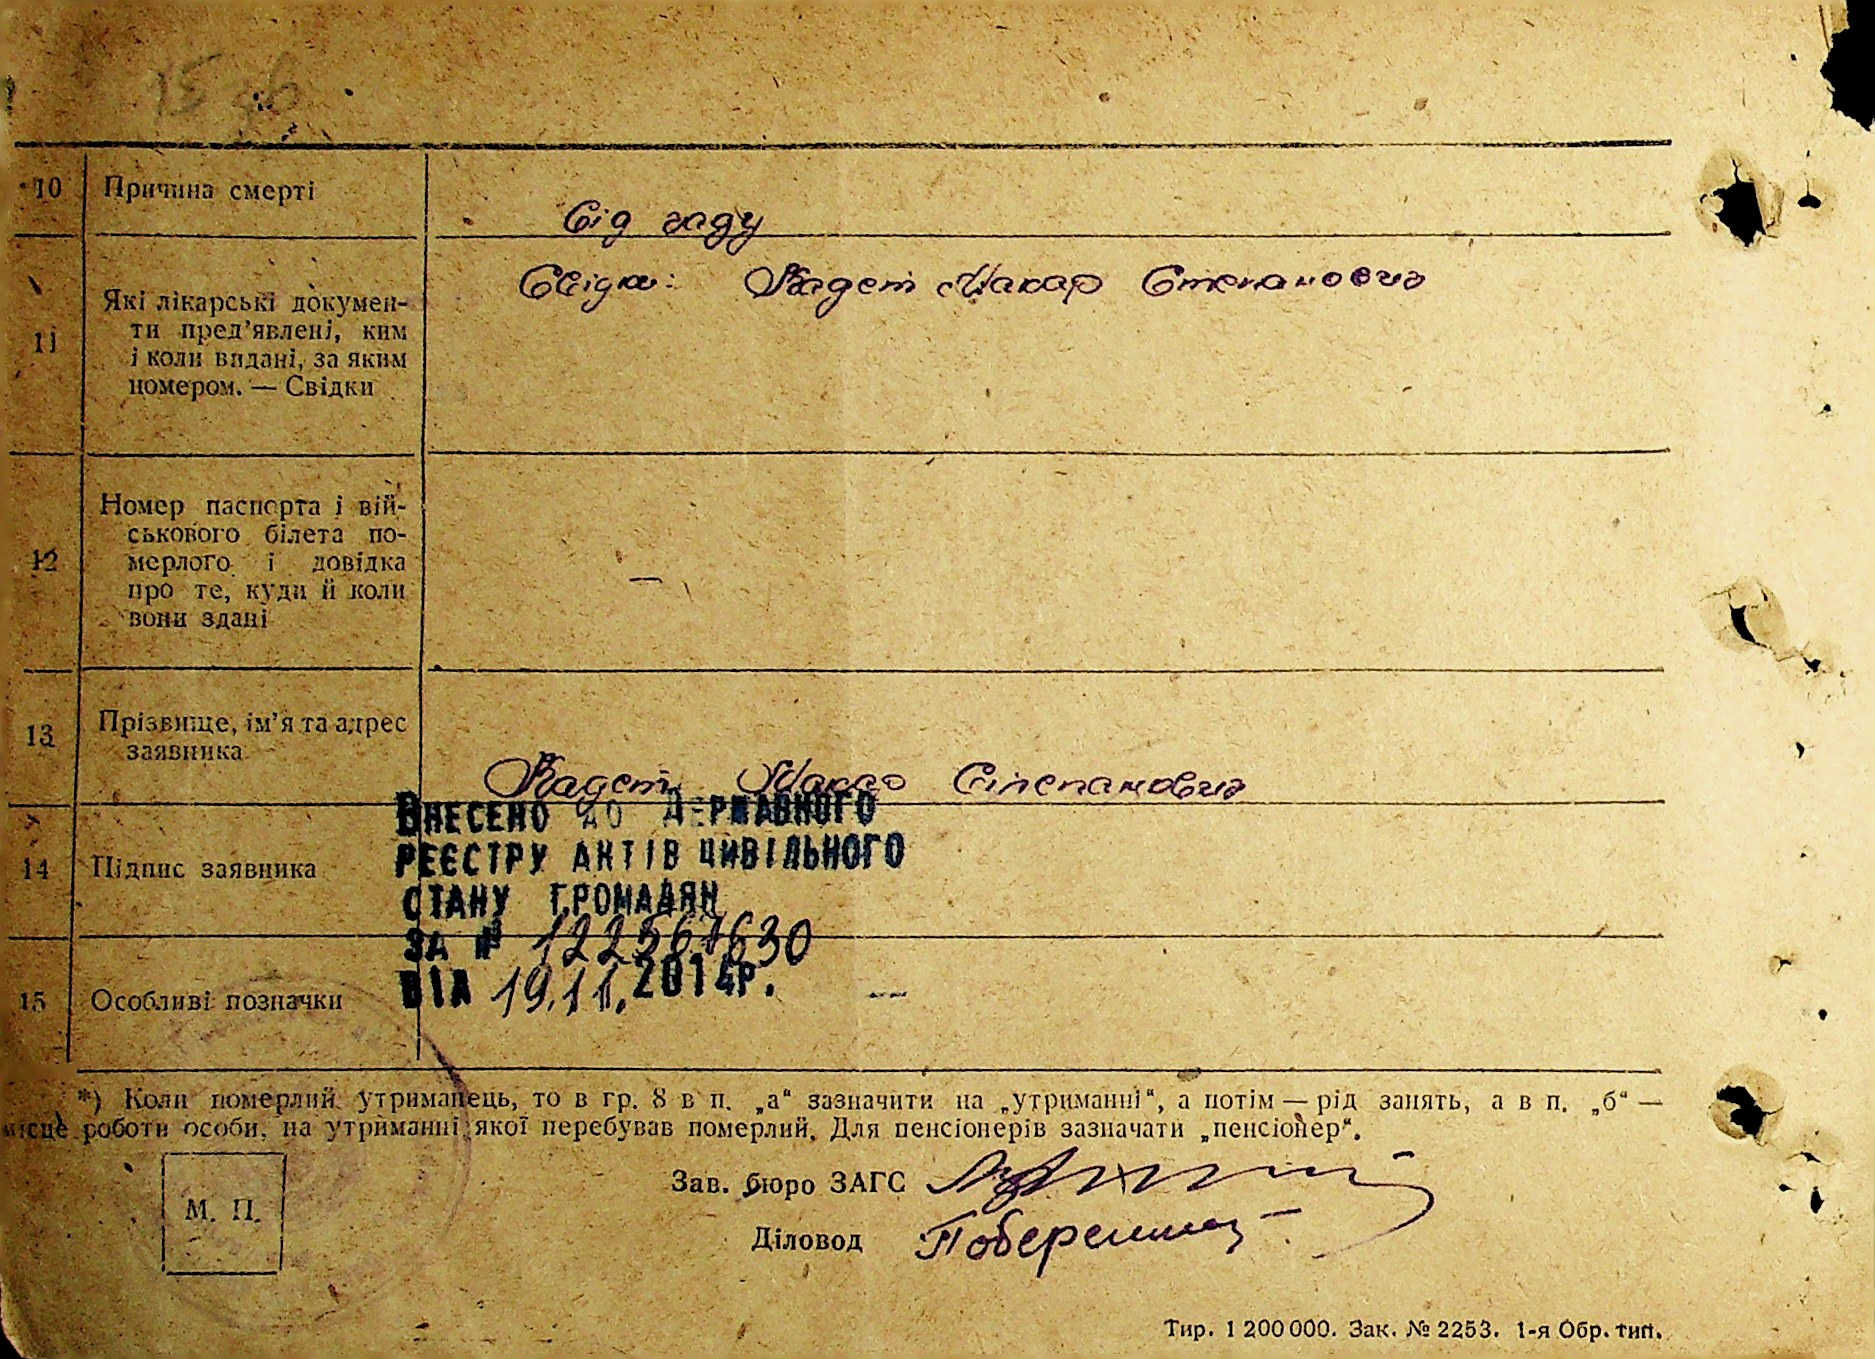 15
10 Причина смерті
Від гаду
11 Які лікарські докумен-
ти пред'явлені, ким
і коли видані, за яким
номером. — Свідки
Свідки: Кадет Макар Степанович
12 Номер паспорта і вій-
ськового білета по-
мерлого і довідка
про те, куди й коли
вони здані
—
13 Прізвище, ім'я та адрес
заявника
Кадет Макар Степанович
14 Підпис заявника
ВНЕСЕНО ДО ДЕРЖАВНОГО
РЕЄСТРУ АКТІВ ЦИВІЛЬНОГО
СТАНУ ГРОМАДЯН
ЗА № 122567630
ВІД 19.11.2014р.
15 Особливі позначки
—
*) Коли померлий утриманець, то в гр. 8 в п. „а“ зазначити на „утриманні“, а потім — рід занять, а в п. „б“ —
місце роботи особи, на утриманні якої перебував померлий. Для пенсіонерів зазначати „пенсіонер“.
Зав. бюро ЗАГС
М. П.
Діловод
Тир. 1 200 000. Зак. № 2253. 1-я Обр. тип.